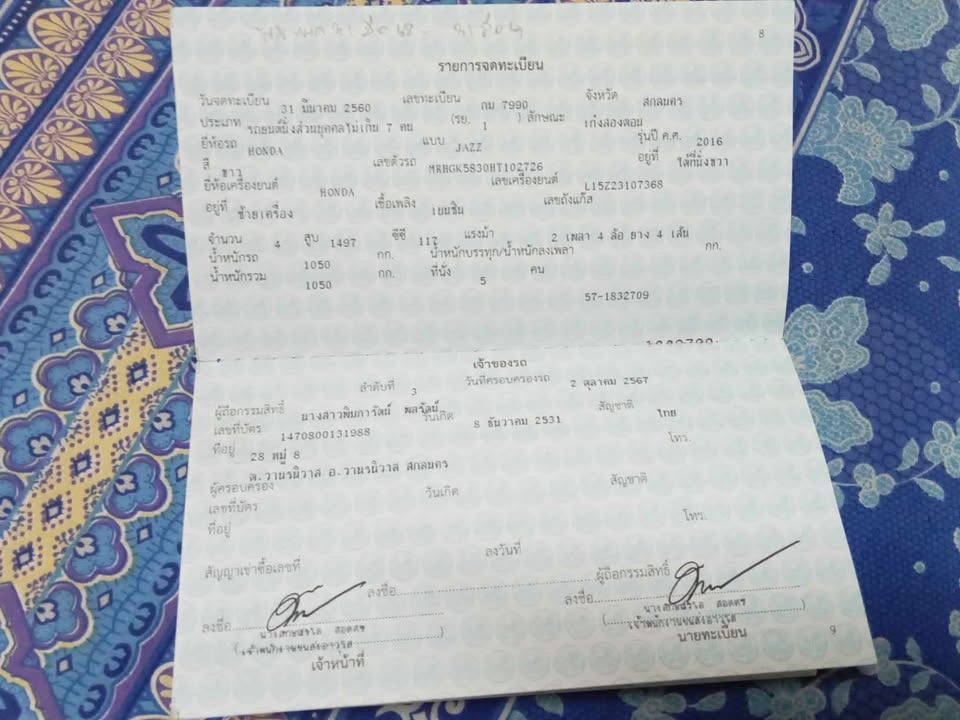 8
รายการจดทะเบียน
วันจดทะเบียน 31 มีนาคม 2560 เลขทะเบียน กม 7990 จังหวัด สกลนคร
ประเภท รถยนต์นั่งส่วนบุคคลไม่เกิน 7 คน (รย. 1 ) ลักษณะ เก๋งสองตอน
ยี่ห้อรถ HONDA แบบ JAZZ รุ่นปี ค.ศ. 2016
สี ขาว เลขตัวรถ MRHGK5830HT102726 อยู่ที่ ใต้ที่นั่งขวา
ยี่ห้อเครื่องยนต์ HONDA เลขเครื่องยนต์ L15Z23107368
อยู่ที่ ซ้ายเครื่อง เชื้อเพลิง เบนซิน เลขถังแก๊ส
จำนวน 4 สูบ 1497 ซีซี 117 แรงม้า 2 เพลา 4 ล้อ ยาง 4 เส้น
น้ำหนักรถ 1050 กก. น้ำหนักบรรทุก/น้ำหนักลงเพลา กก.
น้ำหนักรวม 1050 กก. ที่นั่ง 5 คน
57-1832709
เจ้าของรถ
ลำดับที่ 3 วันที่ครอบครองรถ 2 ตุลาคม 2567
ผู้ถือกรรมสิทธิ์ นางสาวพิมภารัตน์ พลรัตน์
เลขที่บัตร 1470800131988 วันเกิด 8 ธันวาคม 2531 สัญชาติ ไทย
ที่อยู่ 28 หมู่ 8 โทร.
ต.วานรนิวาส อ.วานรนิวาส สกลนคร
ผู้ครอบครอง
เลขที่บัตร วันเกิด สัญชาติ
ที่อยู่ โทร.
สัญญาเช่าซื้อเลขที่ ลงวันที่
ลงชื่อ ผู้ถือกรรมสิทธิ์
ลงชื่อ ลงชื่อ
(เจ้าพนักงานขนส่งอาวุโส) (เจ้าพนักงานขนส่งอาวุโส)
เจ้าหน้าที่ นายทะเบียน
9